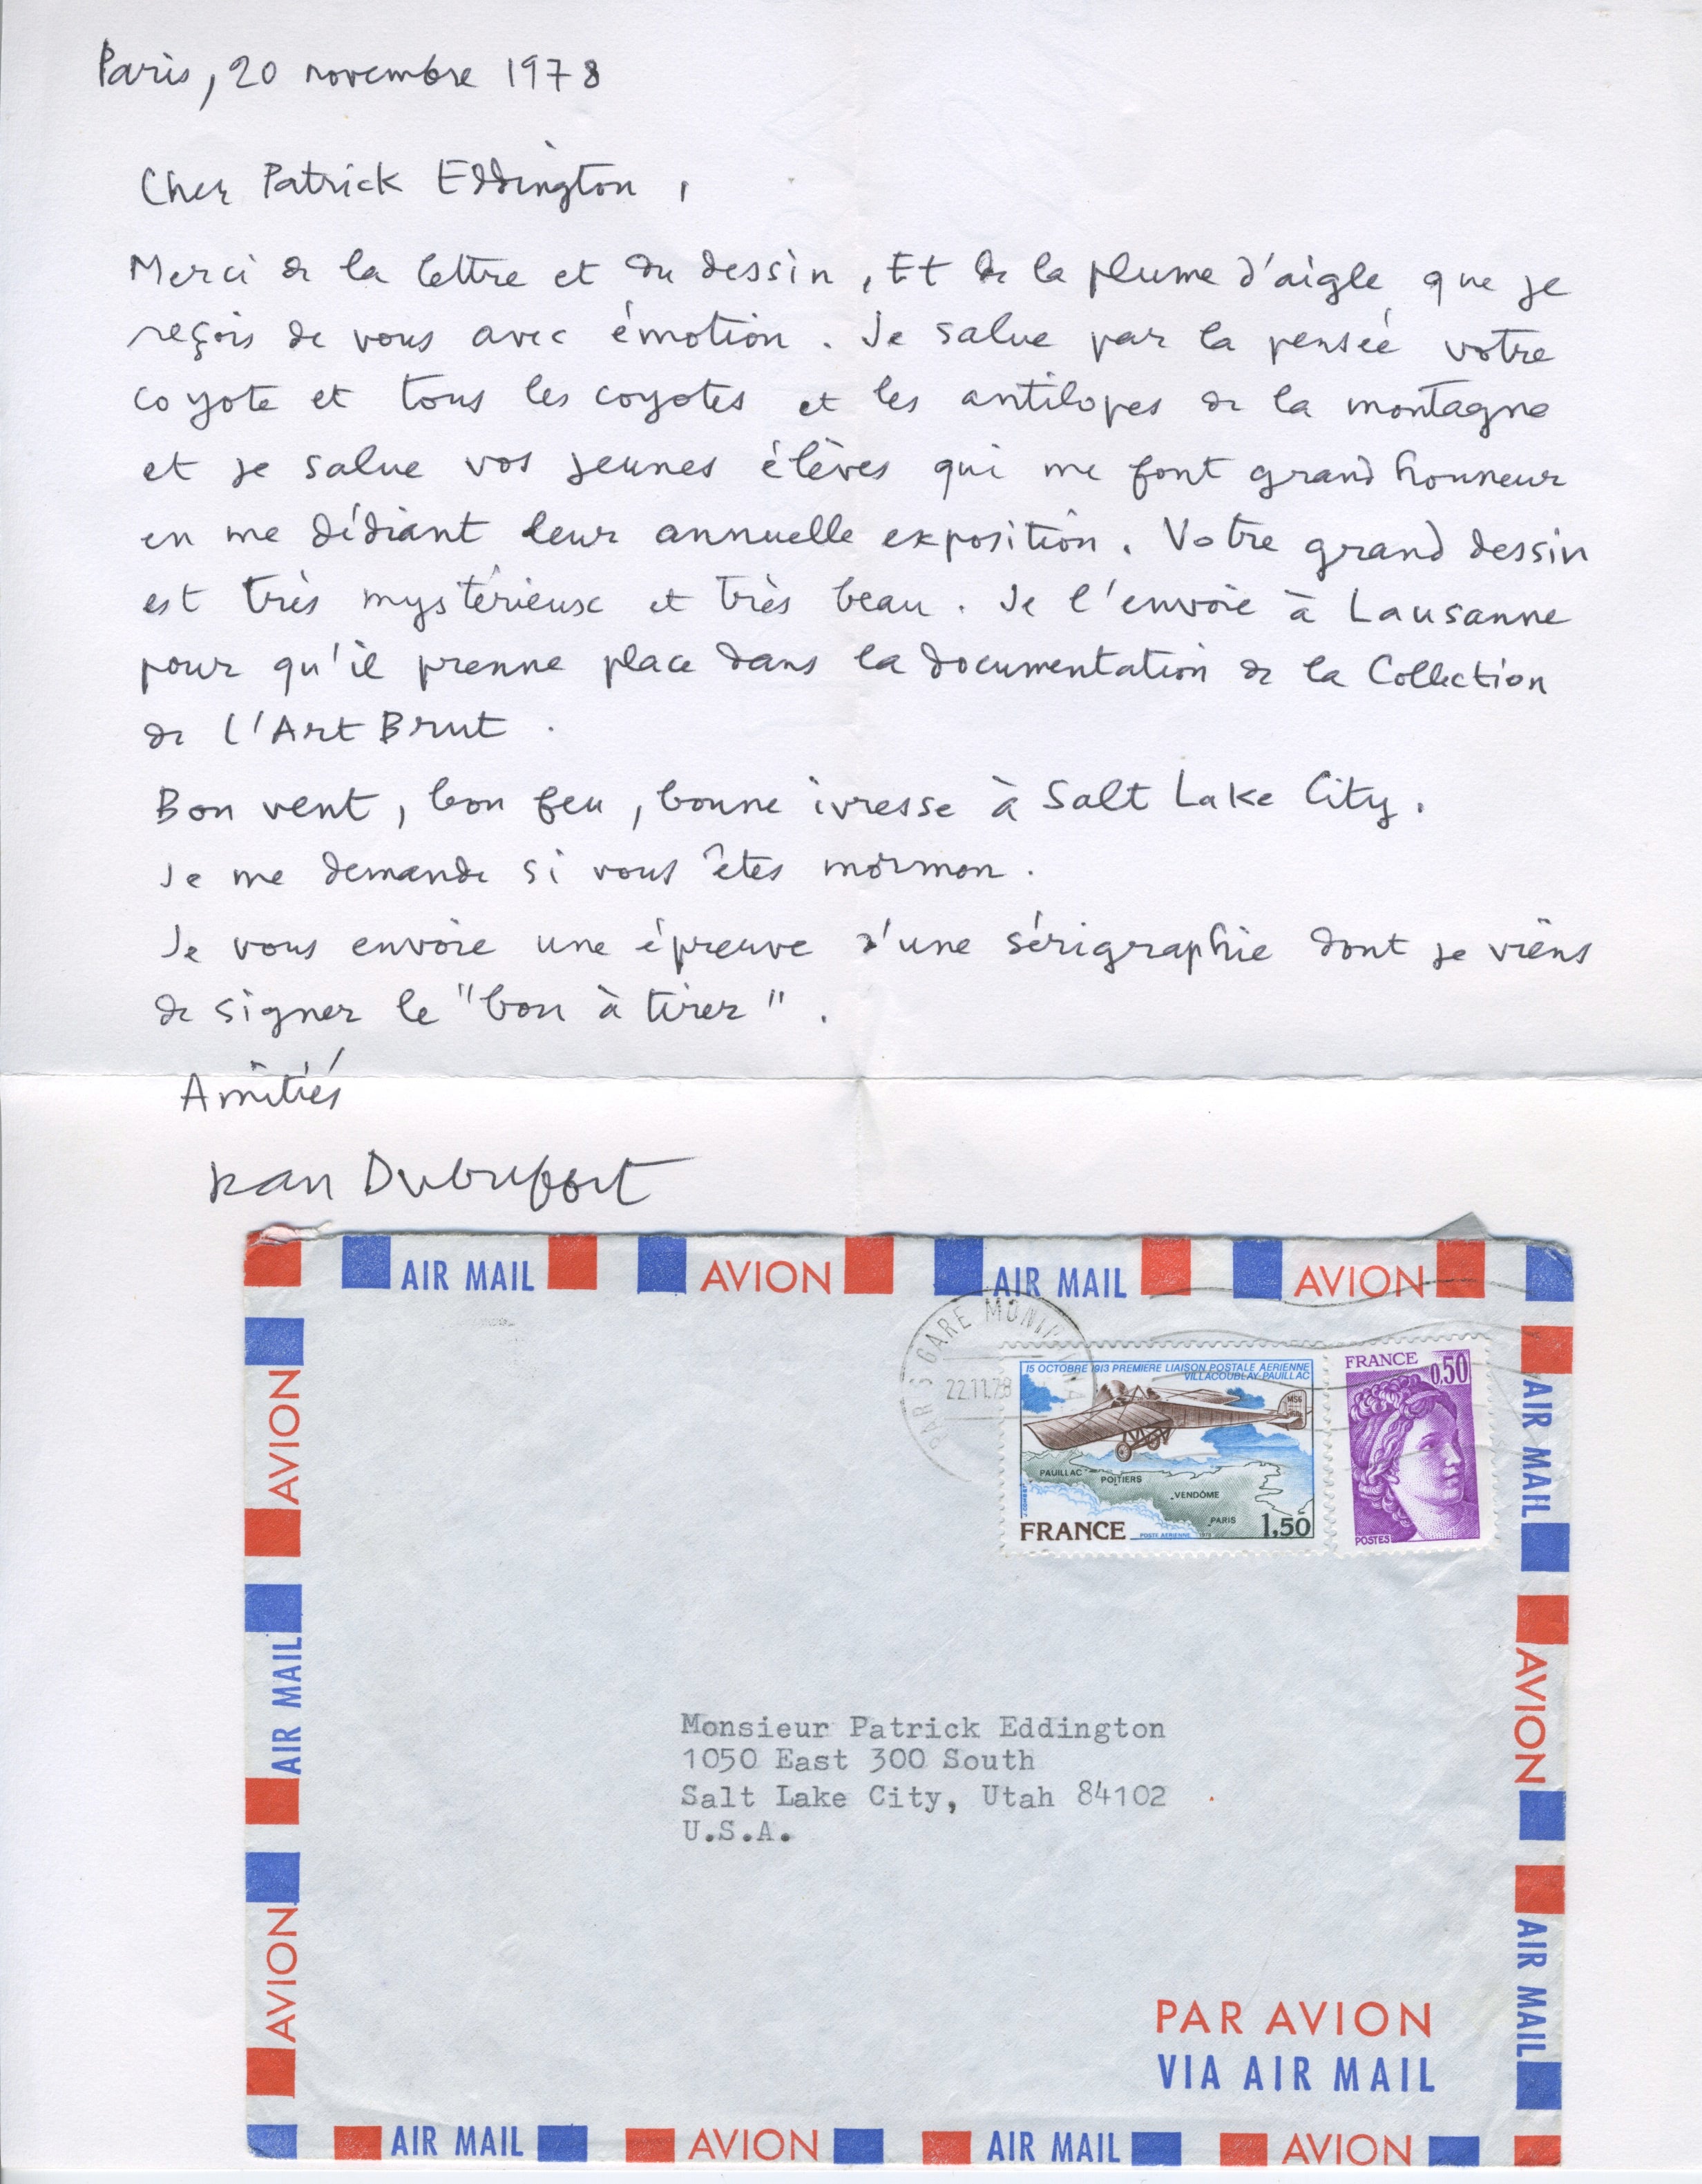 Paris, 20 novembre 1978
Cher Patrick Eddington,
Merci de la lettre et du dessin, Et de la plume d'aigle que je
reçois de vous avec émotion. Je salue par la pensée votre
coyote et tous les coyotes et les antilopes de la montagne
et je salue vos jeunes élèves qui me font grand honneur
en me dédiant leur annuelle exposition. Votre grand dessin
est très mystérieux et très beau. Je l'envoie à Lausanne
pour qu'il prenne place dans la documentation de la Collection
de l'Art Brut.
Bon vent, bon feu, bonne ivresse à Salt Lake City.
Je me demande si vous êtes mormon.
Je vous envoie une épreuve d'une sérigraphie dont je viens
de signer le "bon à tirer".
Amitiés
Jean Dubuffet
AIR MAIL AVION AIR MAIL AVION
PARIS GARE MONTP
22.11.78
15 OCTOBRE 1913 PREMIERE LIAISON POSTALE AERIENNE
VILLACOUBLAY-PAUILLAC
MS6
PAUILLAC
POITIERS
VENDÔME
PARIS
FRANCE
POSTE AERIENNE 1978
1,50
FRANCE
0,50
POSTES
AVION
AIR MAIL
AVION
AIR MAIL
AVION
AIR MAIL
Monsieur Patrick Eddington
1050 East 300 South
Salt Lake City, Utah 84102
U.S.A.
PAR AVION
VIA AIR MAIL
AIR MAIL AVION AIR MAIL AVION